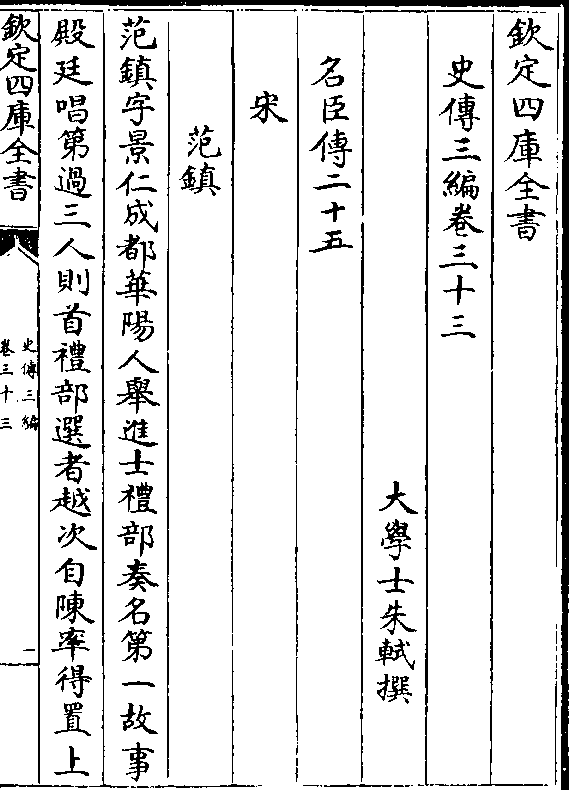 欽定四庫全書
史傳三編卷三十三
大學士朱軾撰
名臣傳二十五
宋
范鎮
范鎮字景仁成都華陽人舉進士禮部奏名第一故事
殿廷唱第過三人則首禮部選者越次自陳率得置上
欽定四庫全書
史傳三編
卷三十三
一